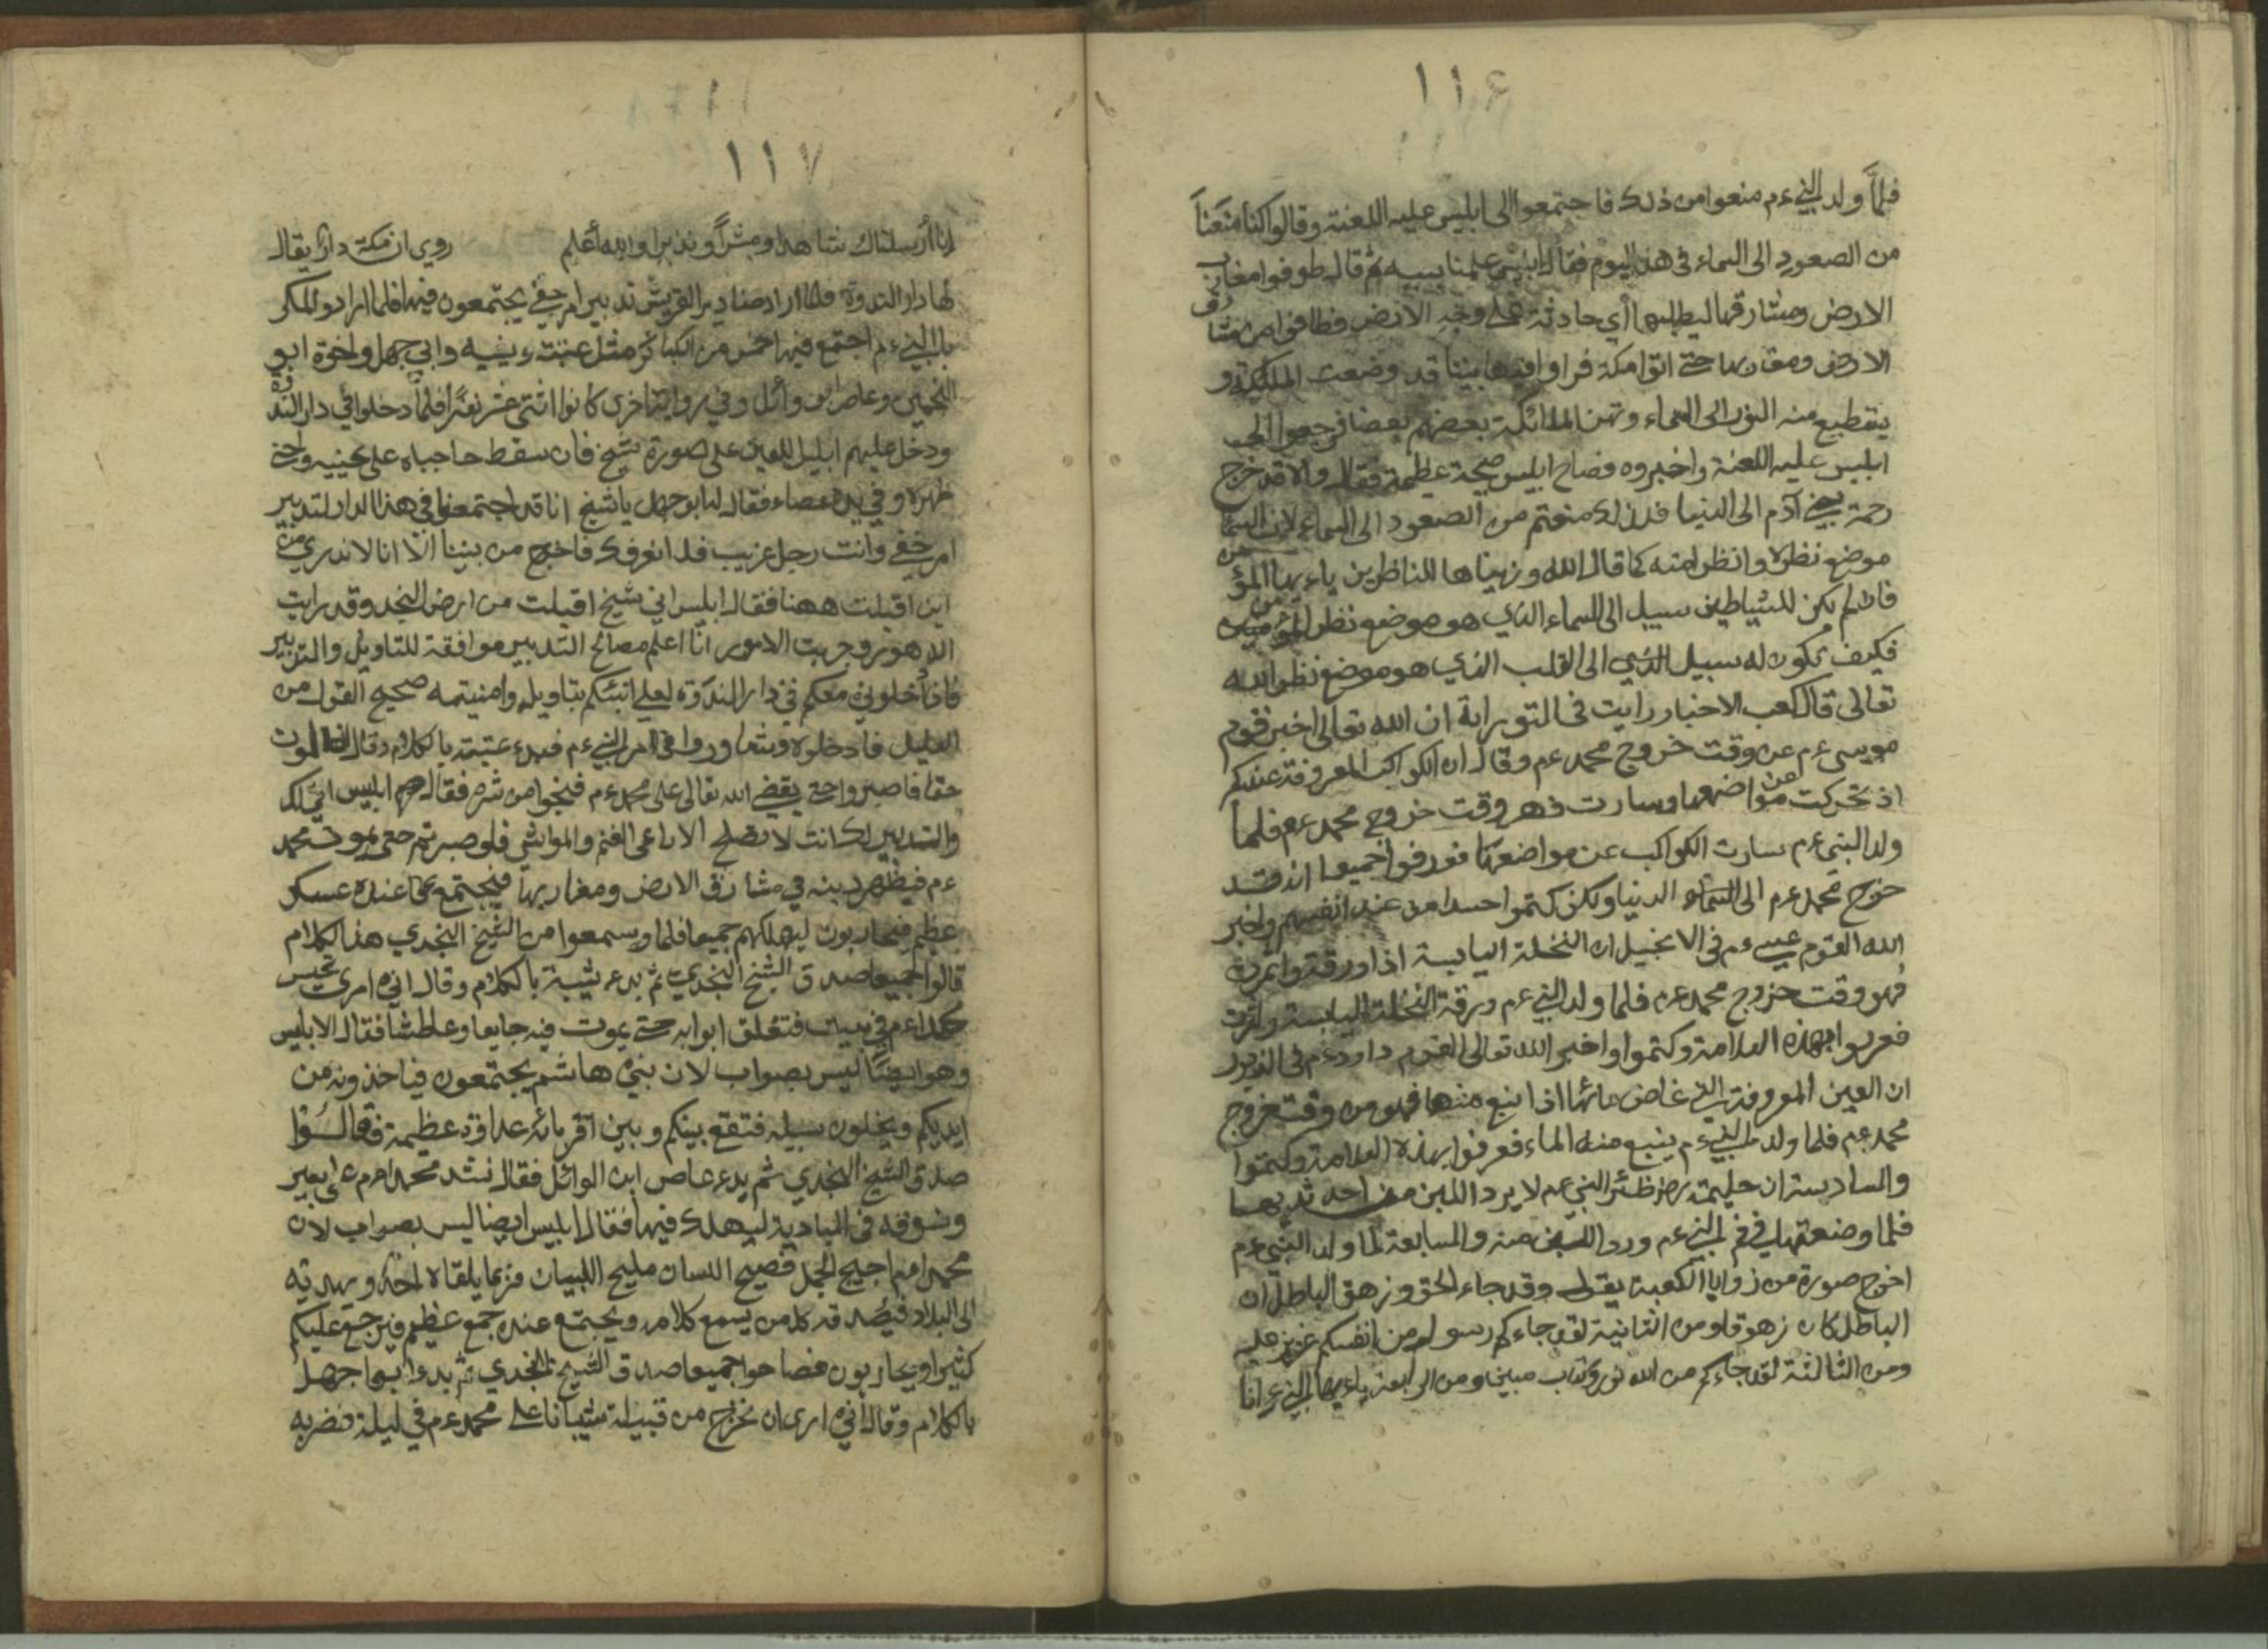 ١١٦
فلمّا ولد النبي ءم منعوا من ذلك فاجتمعوا الى ابليس عليه اللعنة وقالوا كنا منعنا
من الصعود الى السماء في هذ اليوم فقال ثم قال طوفوا مغارب
الارض ومشارقها ليطلبها أي حادثة على وجه الارض فطافوا من مشارق
الارض ومغاربها حتى اتوا مكة فراوا فيها بيتا قد وضعت الملئكة و
منه النور الى السماء الملائكة بعضهم بعضا فرجعوا الى
ابليس عليه اللعنة واخبروه فصاح ابليس صيحة عظيمة فقال والا قد خرج
رحمة بني آدم الى الدنيا فلذلك منعتم من الصعود الى السماء لان السما
موضع نظر كما قال الله وزيناها للناظرين ياءيها المؤمن
فان لم يكن للشياطين سبيل الى السماء الذي هو موضع نظر المؤمنين
فكيف يكون له سبيل الى القلب الذي هو موضع نظر الله
تعالى قال كعب الاحبار رايت في التوراية ان الله تعالى اخبر قوم
موسى ءم عن وقت خروج محمد ءم وقال ان الكواكب المعروفة عندكم
اذ تحركت من مواضعها وسارت فهو وقت خروج محمد ءم فلما
ولد النبي ءم سارت الكواكب عن مواضعها فعرفوا جميعا انه قد
خرج محمد ءم الى السماء الدنيا ولكن كتموا حسدا من عند انفسهم واخبر
الله القوم عيسى ءم في الانجيل ان النخلة اليابسة اذا اورقت واثمرت
فهو وقت خروج محمد ءم فلما ولد النبي ءم ورقة النخلة اليابسة واثمرت
فعرفوا بهذه العلامة وكتموا واخبر الله تعالى القوم داود ءم في الزبور
ان العين المعروفة التي غاض مائها اذا نبع منها فهو من وقت خروج
محمد ءم فلما ولد النبي ءم ينبع منه الماء فعرفوا بهذه العلامة وكتموا
والسادسة ان حليمة رض ظئر النبي ءم لا يرد اللبن من احد ثديها
فلما وضعتها في فم النبي ءم ورد اللبن منه والسابعة لما ولد النبي ءم
اخرج صورة من زوايا الكعبة يقول وقد جاء الحق وزهق الباطل ان
الباطل كان زهوقا ومن الثانية لقد جاءكم رسول من انفسكم عزيز عليه
ومن الثالثة لقد جاءكم من الله نور وكتاب مبين ومن الرابعة ياءيها النبي ء انا
١١٧
انا أرسلناك شاهدا ومبشراً ونذيرا والله أعلم روي ان مكة دارا يقال
لها دار الندوة فلما اراد صناديد القريش تدبير امر خفي يجتمعون فيها فلما ارادو المكر
بالنبي ءم اجتمع فيها خمس من الكبائر مثل عتبة وشيبه وابي جهل واخوة ابو
وعاص ابن وائل وفي رواية اخرى كانوا اثنى عشر نفرًا فلمّا دخلوا في دار الندوة
ودخل عليهم ابليس اللعين على صورة شيخ فان سقط حاجباه على عينيه
ظهره وفي يده عصاء فقال له ابو جهل يا شيخ انا قد اجتمعنا في هذا الدار لتدبير
امر خفي وانت رجل غريب فلا نعرفك فاخرج من بيننا انّا لا ندري من
اين اقبلت ههنا فقال ابليس اني شيخ اقبلت من ارض النجد وقد رايت
الدهور وجربت الامور انّا اعلم مصالح التدبير موافقة للتاويل والتدبير
فادخلوني معكم في دار الندوة لعلي انبئكم بتاويله صحيح القول من
العليل فادخلوه وتشاوروا في امر النبي ءم فبدء عتبة بالكلام وقال الموت
حقا فاصبروا حتى يقضي الله تعالى على محمد ءم فنجوا من شره فقال لهم ابليس
والتدبير كانت لا تصلح الا راعي الغنم والمواشي فلو صبرتم حتى يموت محمد
ءم فيظهر دينه في مشارق الارض ومغاربها فيجتمع عنده عسكر
عظيم فيحاربون ليهلكهم جميعا فلما سمعوا من الشيخ النجدي هذا الكلام
قالوا جميعا صدق الشيخ النجدي ثم بدء شيبة بالكلام وقال اني امرى نحبس
محمدا ءم في بيت فتغلق ابوابه حتى يموت فيه جايعا وعاطشا فقال الابليس
وهو ايضًا ليس بصواب لان بني هاشم يجتمعون فياخذونه من
ايديكم ويخلون سبيله فتقع بينكم وبين اقربائه عداوة عظيمة فقالوا
صدق الشيخ النجدي ثم بدء عاص ابن الوائل فقال نشد محمدا ءم على بعير
ونسوقه في البادية ليهلك فيها فقال ابليس ايضا ليس بصواب لان
محمدا ءم فصيح اللسان مليح البيان فربما يلقاه احد ويهديه
الى البلاد فيصدقه كل من يسمع كلامه ويجتمع عنده جمع عظيم فيرجع عليكم
كثيرا ويحاربون فصاحوا جميعا صدق الشيخ النجدي ثم بدء ابو جهل
بالكلام وقال اني ارى ان نخرج من قبيلة شبانا على محمد ءم في ليلة فضربه